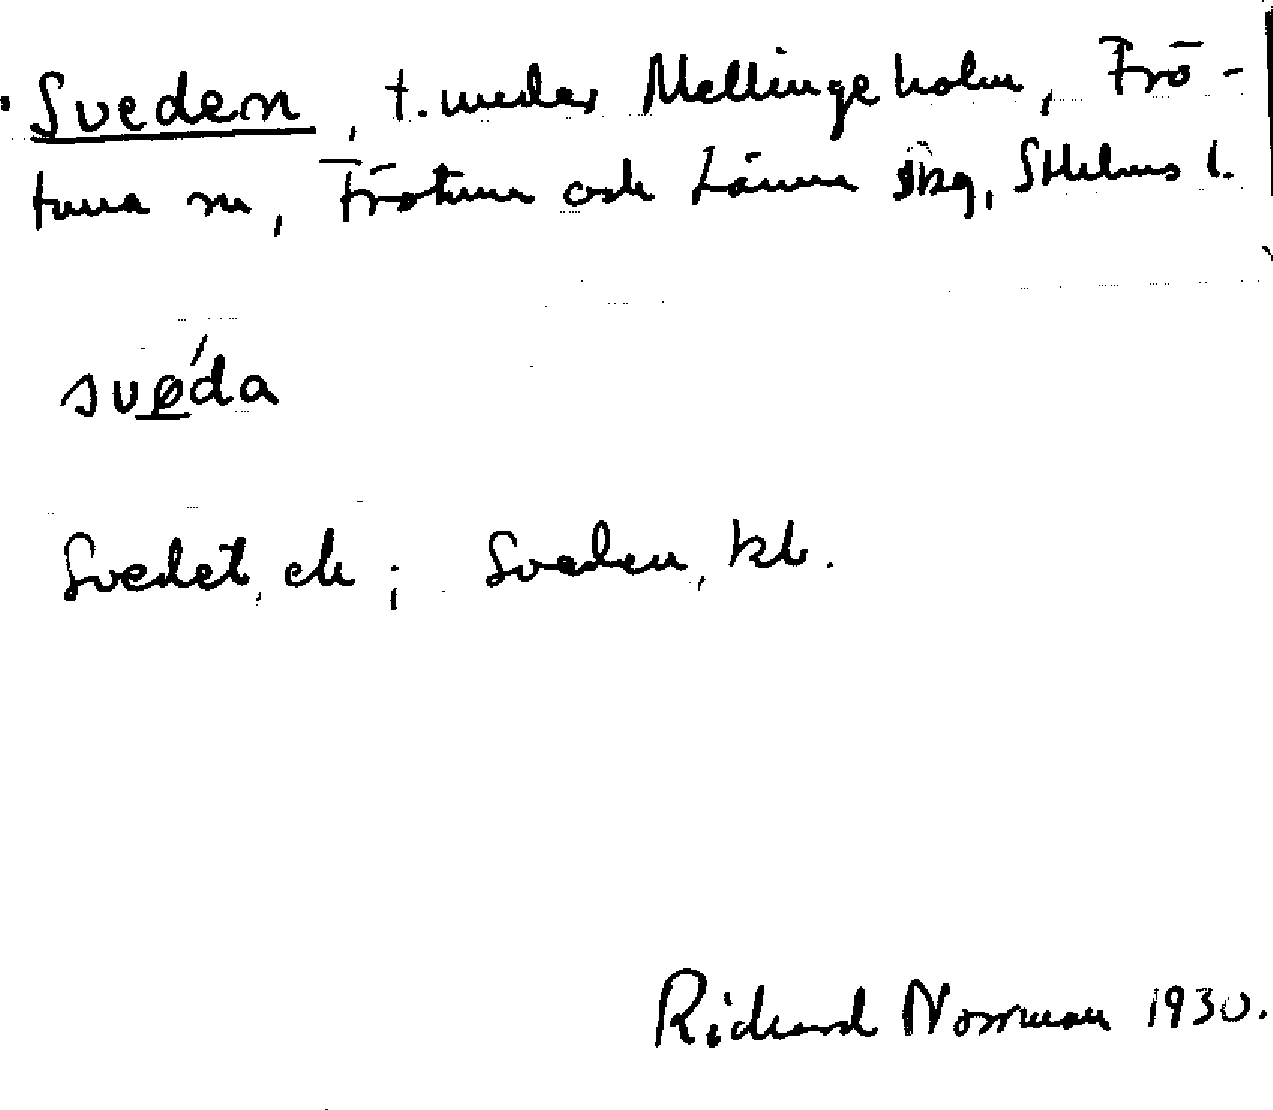 Sveden, t. under Mellingeholm, Frö-
tuna sn, Frötuna och Länna skg, Sthlms l.
svǿda
Svedet, ek; Sveden, kb.
Richard Norrman 1930.